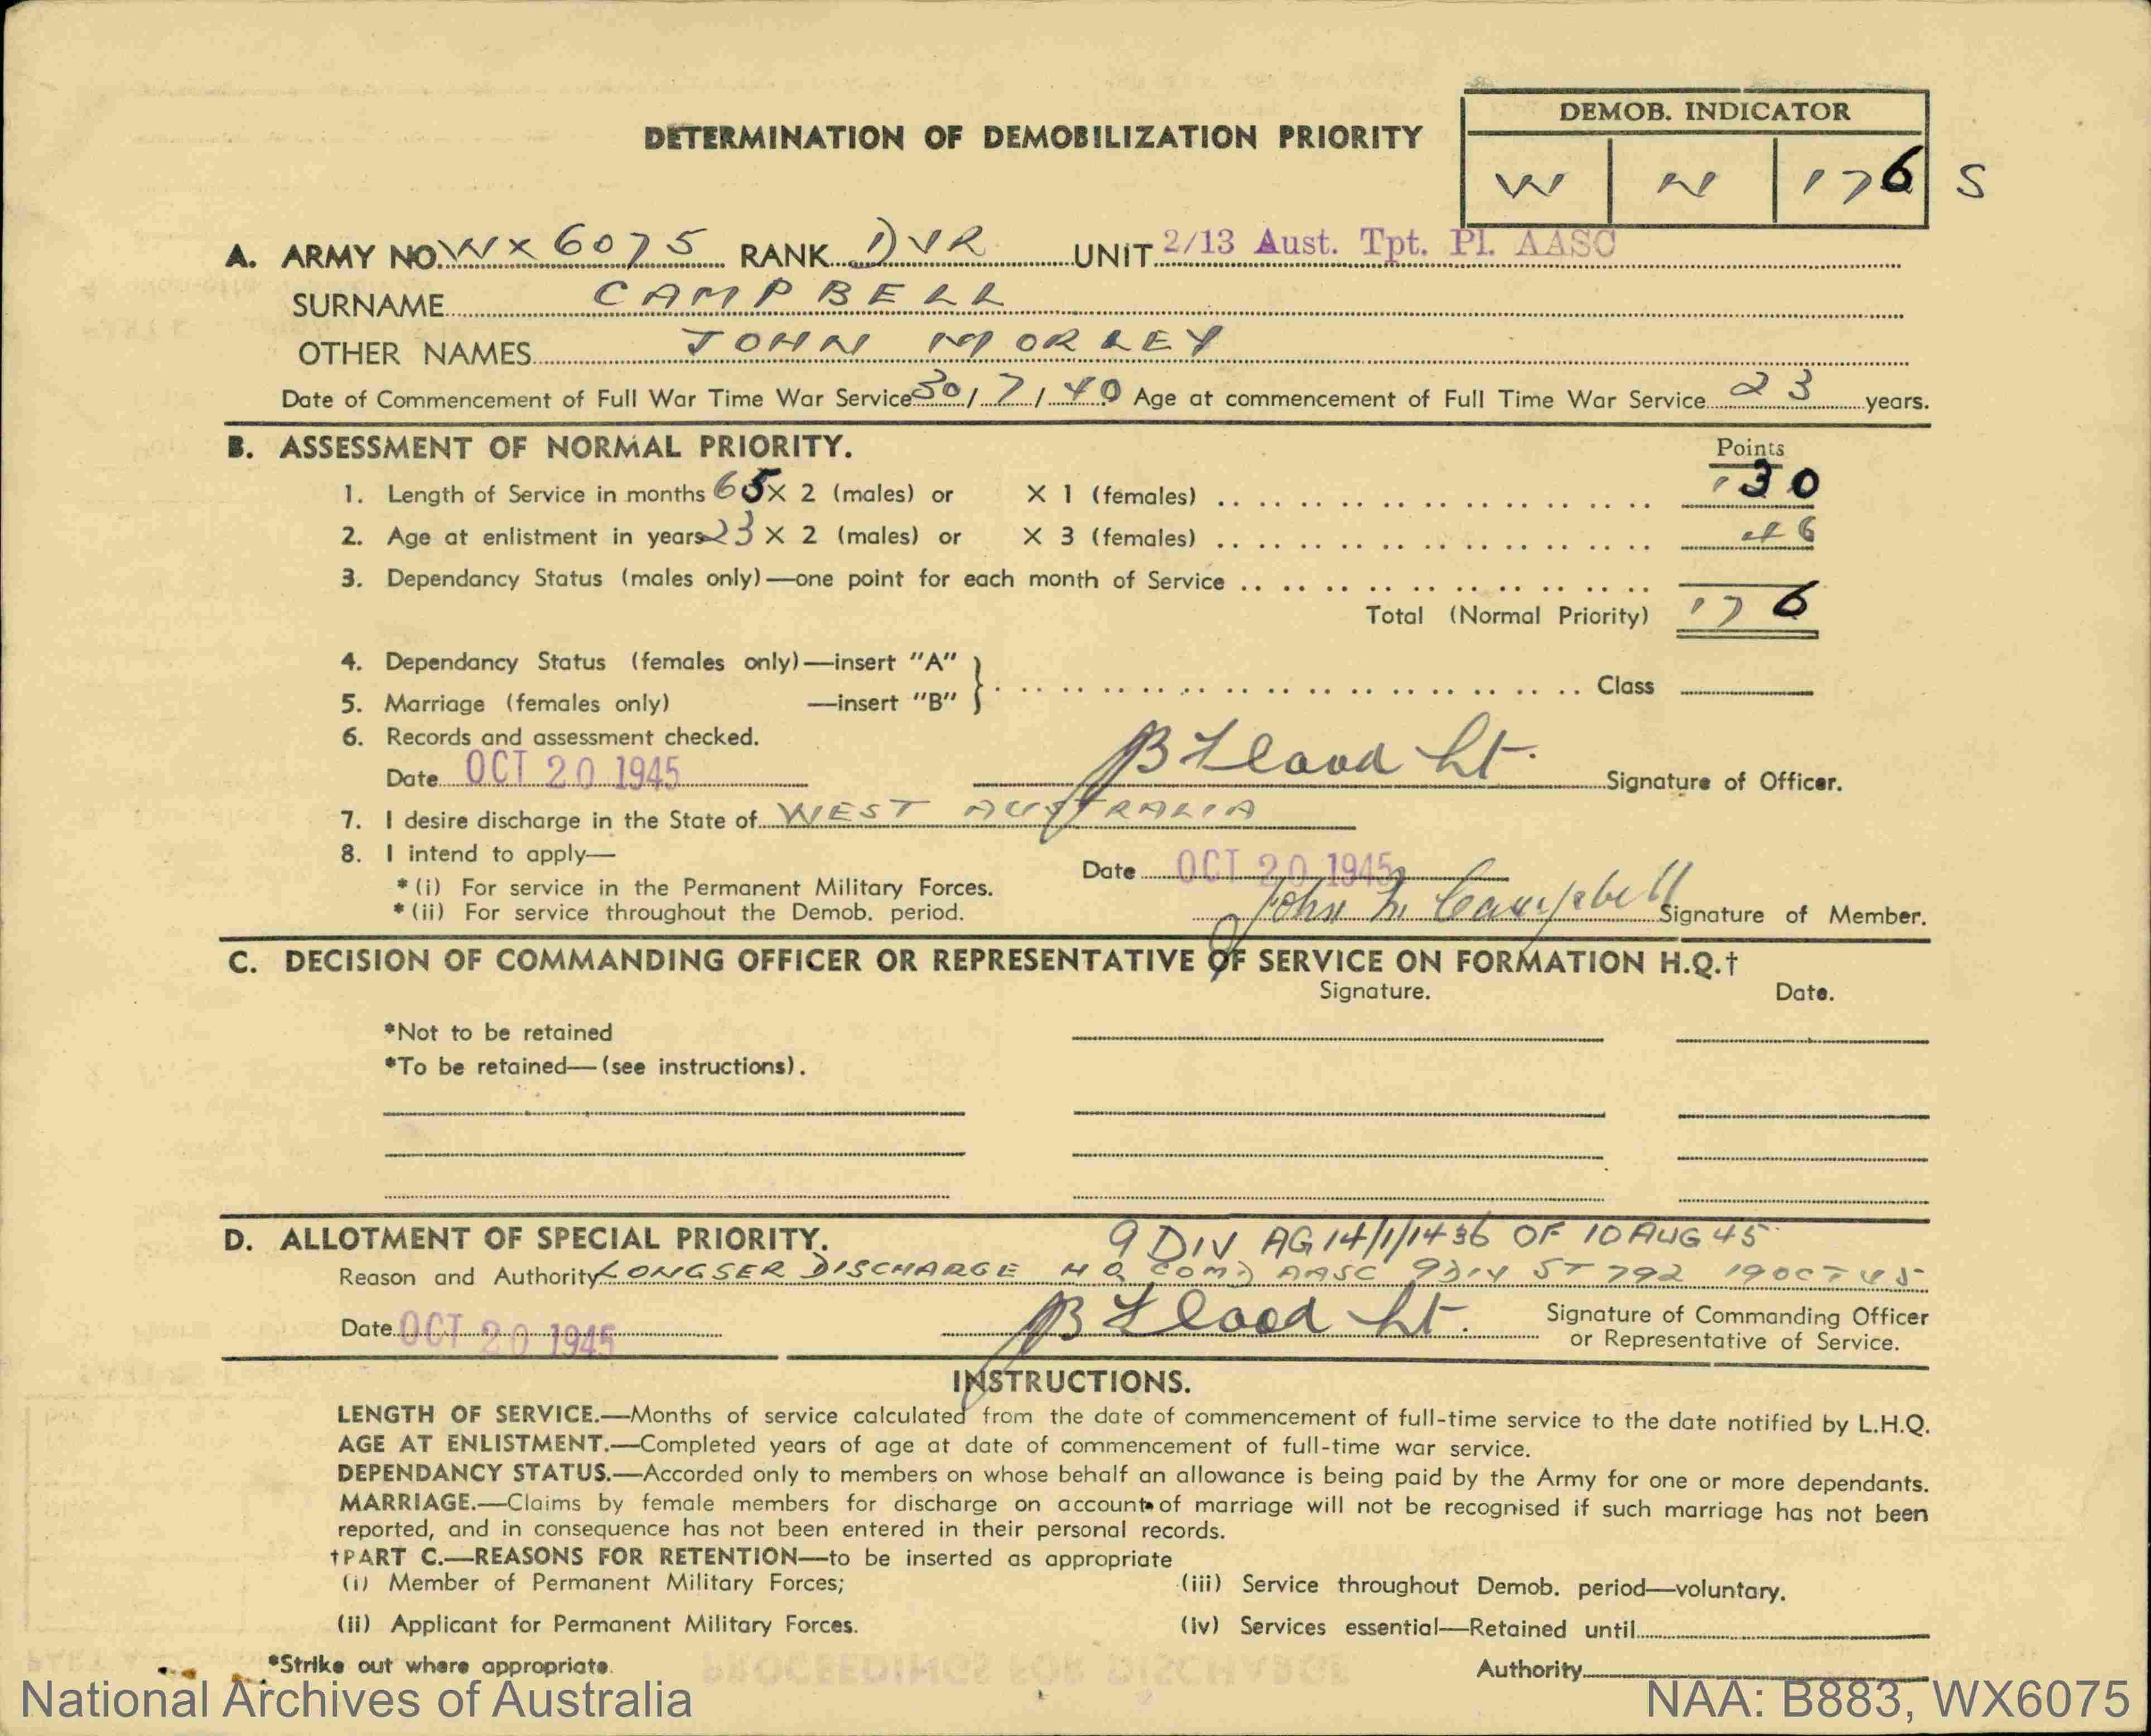 DETERMINATION OF DEMOBILIZATION PRIORITY
DEMOB. INDICATOR
W N 176 S
A. ARMY NO. WX 6075 RANK DVR UNIT 2/13 Aust. Tpt. Pl. AASC
SURNAME CAMPBELL
OTHER NAMES JOHN MORLEY
Date of Commencement of Full War Time War Service 30/7/40 Age at commencement of Full Time War Service 23 years.
B. ASSESSMENT OF NORMAL PRIORITY.
Points
1. Length of Service in months 65 × 2 (males) or × 1 (females) 130
2. Age at enlistment in years 23 × 2 (males) or × 3 (females) 46
3. Dependancy Status (males only)—one point for each month of Service
Total (Normal Priority) 176
4. Dependancy Status (females only)—insert "A"
5. Marriage (females only) —insert "B" Class
6. Records and assessment checked.
Date OCT 20 1945 B Flood Lt. Signature of Officer.
7. I desire discharge in the State of WEST AUSTRALIA
8. I intend to apply—
Date OCT 20 1945
*(i) For service in the Permanent Military Forces.
*(ii) For service throughout the Demob. period.
John M Campbell Signature of Member.
C. DECISION OF COMMANDING OFFICER OR REPRESENTATIVE OF SERVICE ON FORMATION H.Q.†
Signature. Date.
*Not to be retained
*To be retained—(see instructions).
D. ALLOTMENT OF SPECIAL PRIORITY. 9 DIV AG 14/1/1436 OF 10 AUG 45
Reason and Authority LONGSER DISCHARGE HQ COMD AASC 9 DIV ST 792 19 OCT 45
Date OCT 20 1945 B Flood Lt. Signature of Commanding Officer
or Representative of Service.
INSTRUCTIONS.
LENGTH OF SERVICE.—Months of service calculated from the date of commencement of full-time service to the date notified by L.H.Q.
AGE AT ENLISTMENT.—Completed years of age at date of commencement of full-time war service.
DEPENDANCY STATUS.—Accorded only to members on whose behalf an allowance is being paid by the Army for one or more dependants.
MARRIAGE.—Claims by female members for discharge on account of marriage will not be recognised if such marriage has not been
reported, and in consequence has not been entered in their personal records.
†PART C.—REASONS FOR RETENTION—to be inserted as appropriate
(i) Member of Permanent Military Forces; (iii) Service throughout Demob. period—voluntary.
(ii) Applicant for Permanent Military Forces. (iv) Services essential—Retained until
*Strike out where appropriate. Authority
National Archives of Australia NAA: B883, WX6075